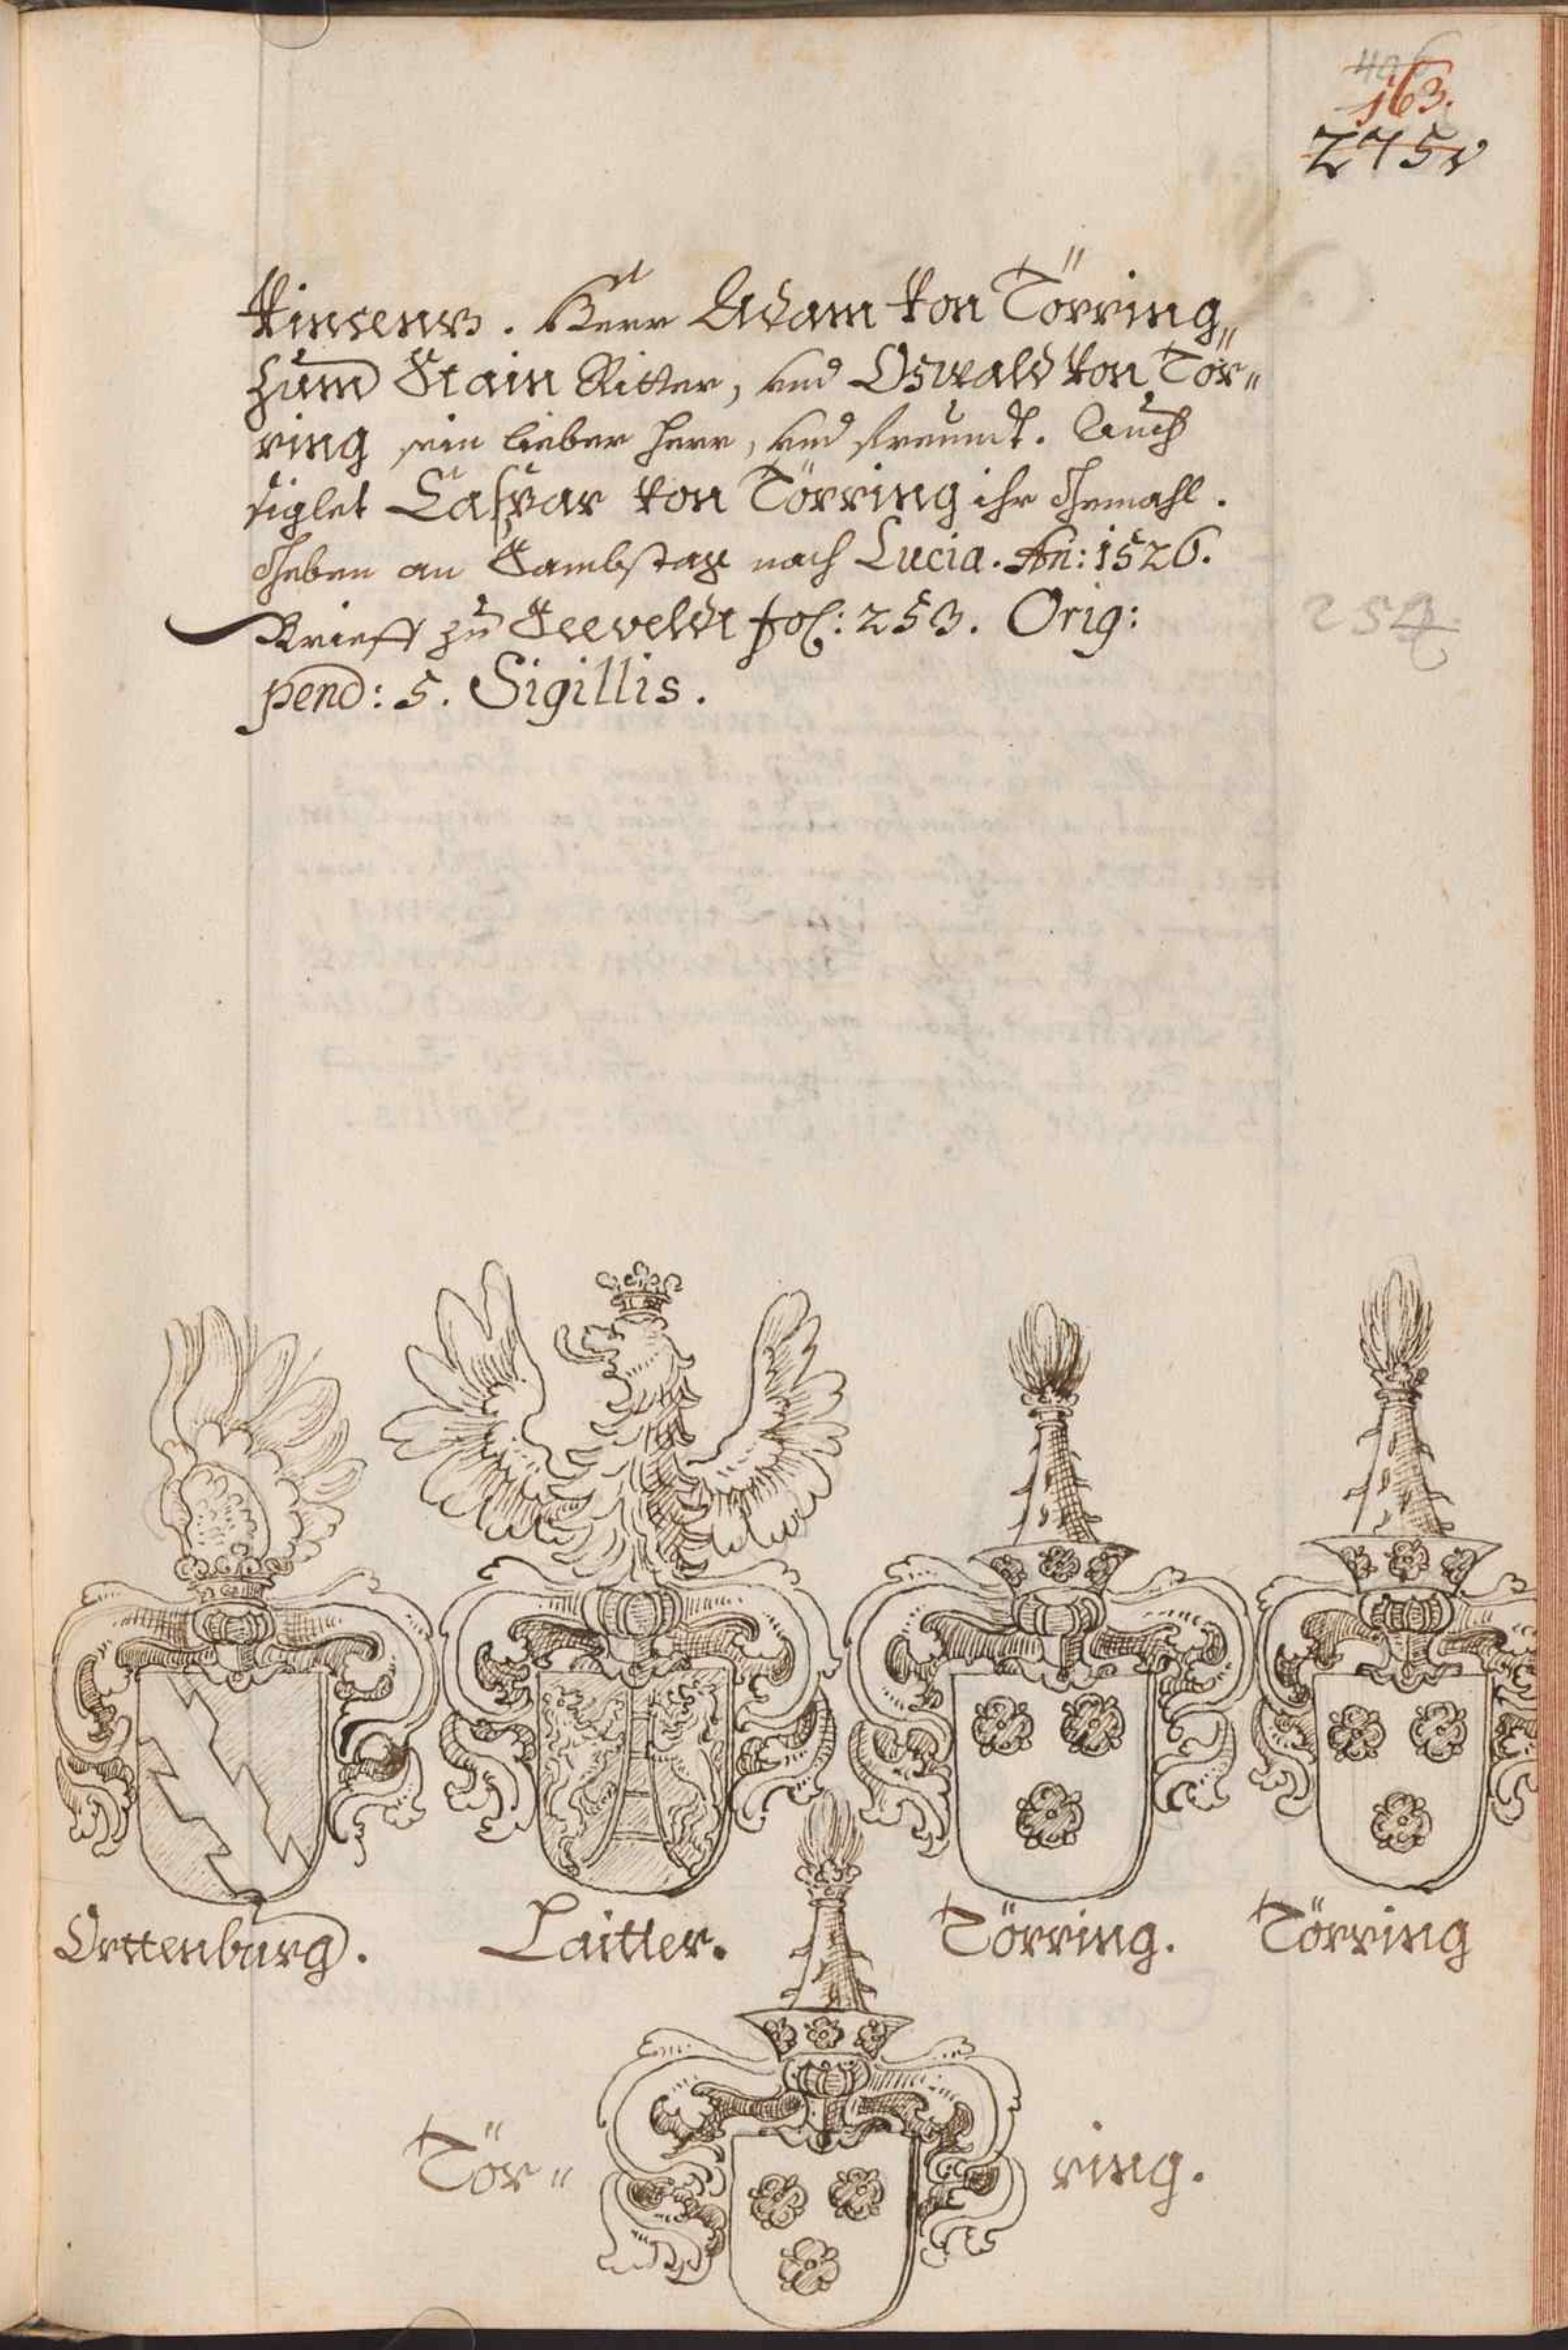 163.
275v
Vinsenz. Herr Adam von Törring
zum Stain Ritter, und Oswald von Tör„
ring sein lieber Herr, und freundt. Auch
siglet Caspar von Törring ihr Gemahl.
Geben an Sambstag nach Lucia. An: 1526.
Brieff zu Seeveldt fol: 253. Orig:
254
pend: 5. Sigillis.
Orttenburg.
Laitter.
Törring.
Törring
Tör„
ring.